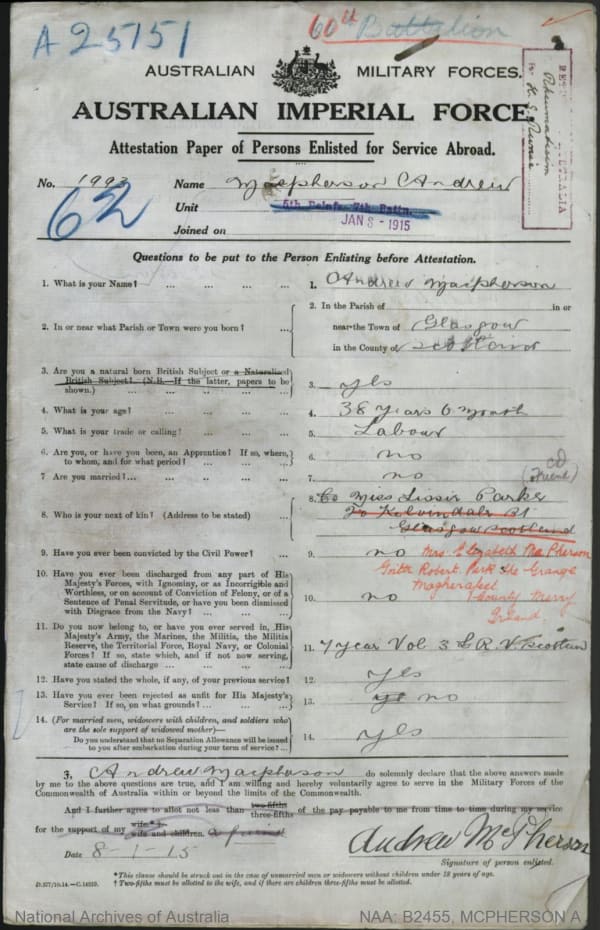 A25151
60th Battalion
AUSTRALIAN MILITARY FORCES.
AUSTRALIAN IMPERIAL FORCE
Attestation Paper of Persons Enlisted for Service Abroad.
No. 1993 Name Macpherson Andrew
62
Unit 5th Reinfs. 7th Battn.
JAN 8 - 1915
Joined on
Rheumatism
Questions to be put to the Person Enlisting before Attestation.
1. What is your Name? ... ... ... ... 1. Andrew Macpherson
2. In or near what Parish or Town were you born? ...
2. In the Parish of in or
near the Town of Glasgow
in the County of Scotland
3. Are you a natural born British Subject or a Naturalised
British Subject? (N.B.—If the latter, papers to be
shown.) ... ... ... ... ... 3. yes
4. What is your age? ... ... ... ... 4. 38 years 6 month
5. What is your trade or calling? ... ... ... 5. Labour
6. Are you, or have you been, an Apprentice? If so, where,
to whom, and for what period? ... ... ... 6. no
7. Are you married?... ... ... ... ... 7. no
(Friend)
8. Who is your next of kin? (Address to be stated) ...
8. Co Miss Lissie Parke
70 Kelvindale St
Glasgow Scotland
9. Have you ever been convicted by the Civil Power? ... 9. no
Mrs. Elizabeth McPherson
Robert Park The Grange
Magherafelt
County Merry
Ireland
10. Have you ever been discharged from any part of His
Majesty's Forces, with Ignominy, or as Incorrigible and
Worthless, or on account of Conviction of Felony, or of a
Sentence of Penal Servitude, or have you been dismissed
with Disgrace from the Navy? ... ... ... 10. no
11. Do you now belong to, or have you ever served in, His
Majesty's Army, the Marines, the Militia, the Militia
Reserve, the Territorial Force, Royal Navy, or Colonial
Forces? If so, state which, and if not now serving,
state cause of discharge ... ... ... ... 11. 7 year Vol 3 L R V
12. Have you stated the whole, if any, of your previous service? 12. yes
13. Have you ever been rejected as unfit for His Majesty's
Service? If so, on what grounds? ... ... ... 13. ye no
14. (For married men, widowers with children, and soldiers who
are the sole support of widowed mother)—
Do you understand that no Separation Allowance will be issued
to you after embarkation during your term of service? ... 14. yes
I, Andrew Macpherson do solemnly declare that the above answers made
by me to the above questions are true, and I am willing and hereby voluntarily agree to serve in the Military Forces of the
Commonwealth of Australia within or beyond the limits of the Commonwealth.
And I further agree to allot not less than two-fifths three-fifths of the pay payable to me from time to time during my service
for the support of my wife* wife and children.
Date 8-1-15
Andrew McPherson
Signature of person enlisted.
*This clause should be struck out in the case of unmarried men or widowers without children under 18 years of age.
D.577/10.14.—C.14210. † Two-fifths must be allotted to the wife, and if there are children three-fifths must be allotted.
National Archives of Australia NAA: B2455, MCPHERSON A